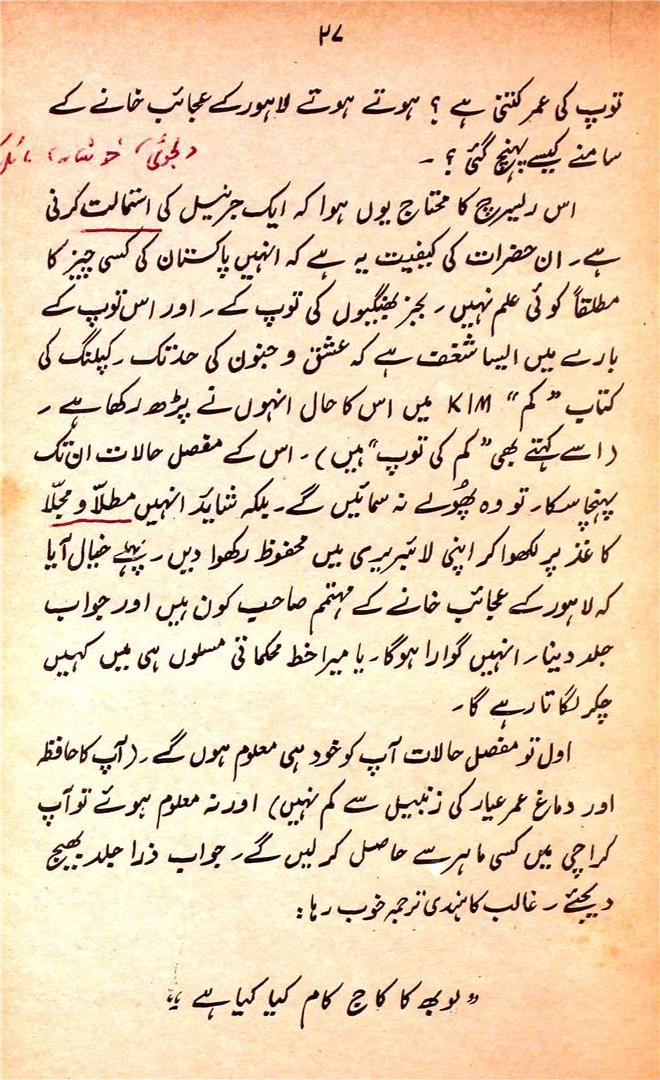 ۲۷
توپ کی عمر کتنی ہے ؟ ہوتے ہوتے لاہور کے عجائب خانے کے
سامنے کیسے پہنچ گئی ؟ ۔
دلجوئی، خوشامد، مائل
اس ریسرچ کا محتاج یوں ہوا کہ ایک جرنیل کی استمالت کرنی
ہے ۔ ان حضرات کی کیفیت یہ ہے کہ انہیں پاکستان کی کسی چیز کا
مطلقاً کوئی علم نہیں ۔ بجز بھنگیوں کی توپ کے ۔ اور اس توپ کے
بارے میں ایسا شغف ہے کہ عشق و جنون کی حد تک ۔ کپلنگ کی
کتاب ”کم“ KIM میں اس کا حال انہوں نے پڑھ رکھا ہے ۔
(اسے کہتے بھی ”کم کی توپ“ ہیں) ۔ اس کے مفصل حالات ان تک
پہنچا سکا ۔ تو وہ پھُولے نہ سمائیں گے ۔ بلکہ شاید انہیں مطلّا و مجلّا
کاغذ پر لکھوا کر اپنی لائبریری میں محفوظ رکھوا دیں ۔ پہلے خیال آیا
کہ لاہور کے عجائب خانے کے مہتمم صاحب کون ہیں اور جواب
جلد دینا ۔ انہیں گوارا ہوگا ۔ یا میرا خط محکماتی مسلوں ہی میں کہیں
چکر لگاتا رہے گا ۔
اول تو مفصل حالات آپ کو خود ہی معلوم ہوں گے ۔ (آپ کا حافظہ
اور دماغ عمر عیار کی زنبیل سے کم نہیں) اور نہ معلوم ہوئے تو آپ
کراچی میں کسی ماہر سے حاصل کر لیں گے ۔ جواب ذرا جلد بھیج
دیجئے ۔ غالب کا ہندی ترجمہ خوب رہا :
”لوبھ کا کاج کام کیا کیا ہے“